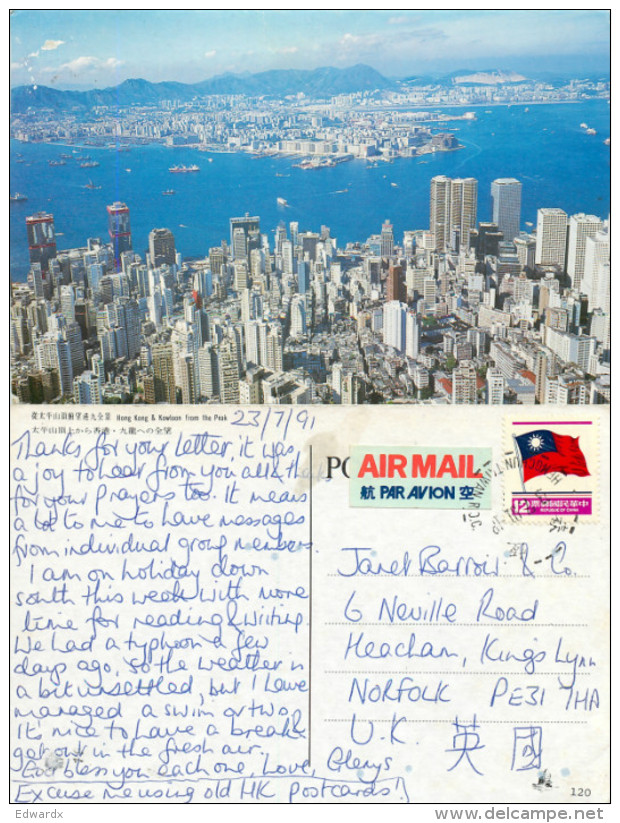 從太平山頂俯望港九全景 Hong Kong & Kowloon from the Peak
太平山頂上から香港・九龍への全望
23/7/91
Thanks for your letter, it was
a joy to hear from you all & than
for your prayers too. It means
a lot to me to have messages
from individual group members.
I am on holiday down
south this week with more
time for reading & writing.
We had a typhoon a few
days ago, so the weather is
a bit unsettled, but I have
managed a swim or two,
it's nice to have a break &
get out in the fresh air.
God bless you each one, Love, Glenys
Excuse me using old HK postcards!
PO
AIR MAIL
航 PAR AVION 空
TAIWAN R.O.C.
12
中華民國郵票
REPUBLIC OF CHINA
Janet Barrow & Co.
6 Neville Road
Heacham, King's Lynn
NORFOLK PE31 7HA
U.K. 英國
120
Edwardx
www.delcampe.net